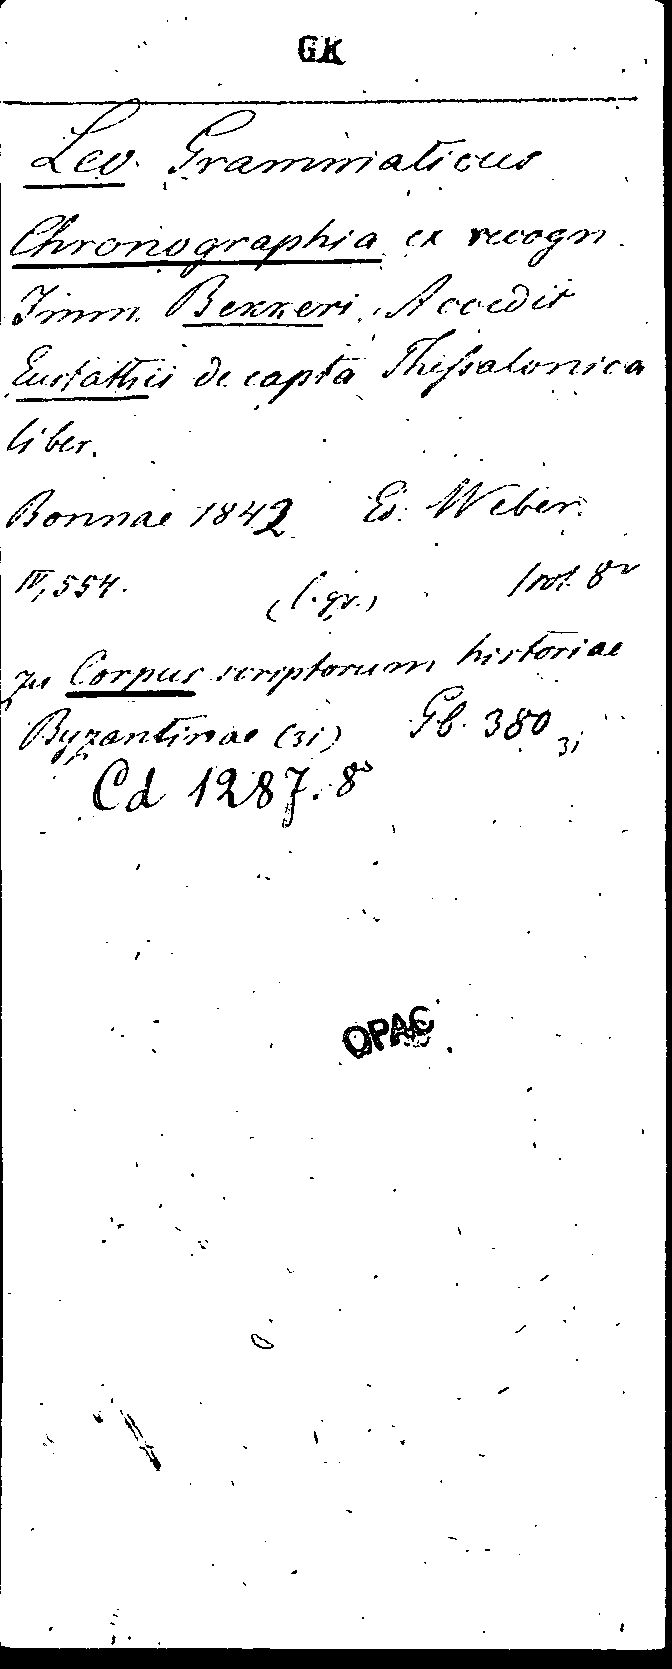 GK
Leo Grammaticus
Chronographia ex recogn.
Imm. Bekkeri. Accedit
Eustathii de capta Thessalonica
liber.
Bonnae 1842 Ed. Weber.
IV, 554. (l. gr.) 8°
zu Corpus scriptorum historiae
Byzantinae (31) Gb. 380 31
Cd 1287. 8°
OPAC